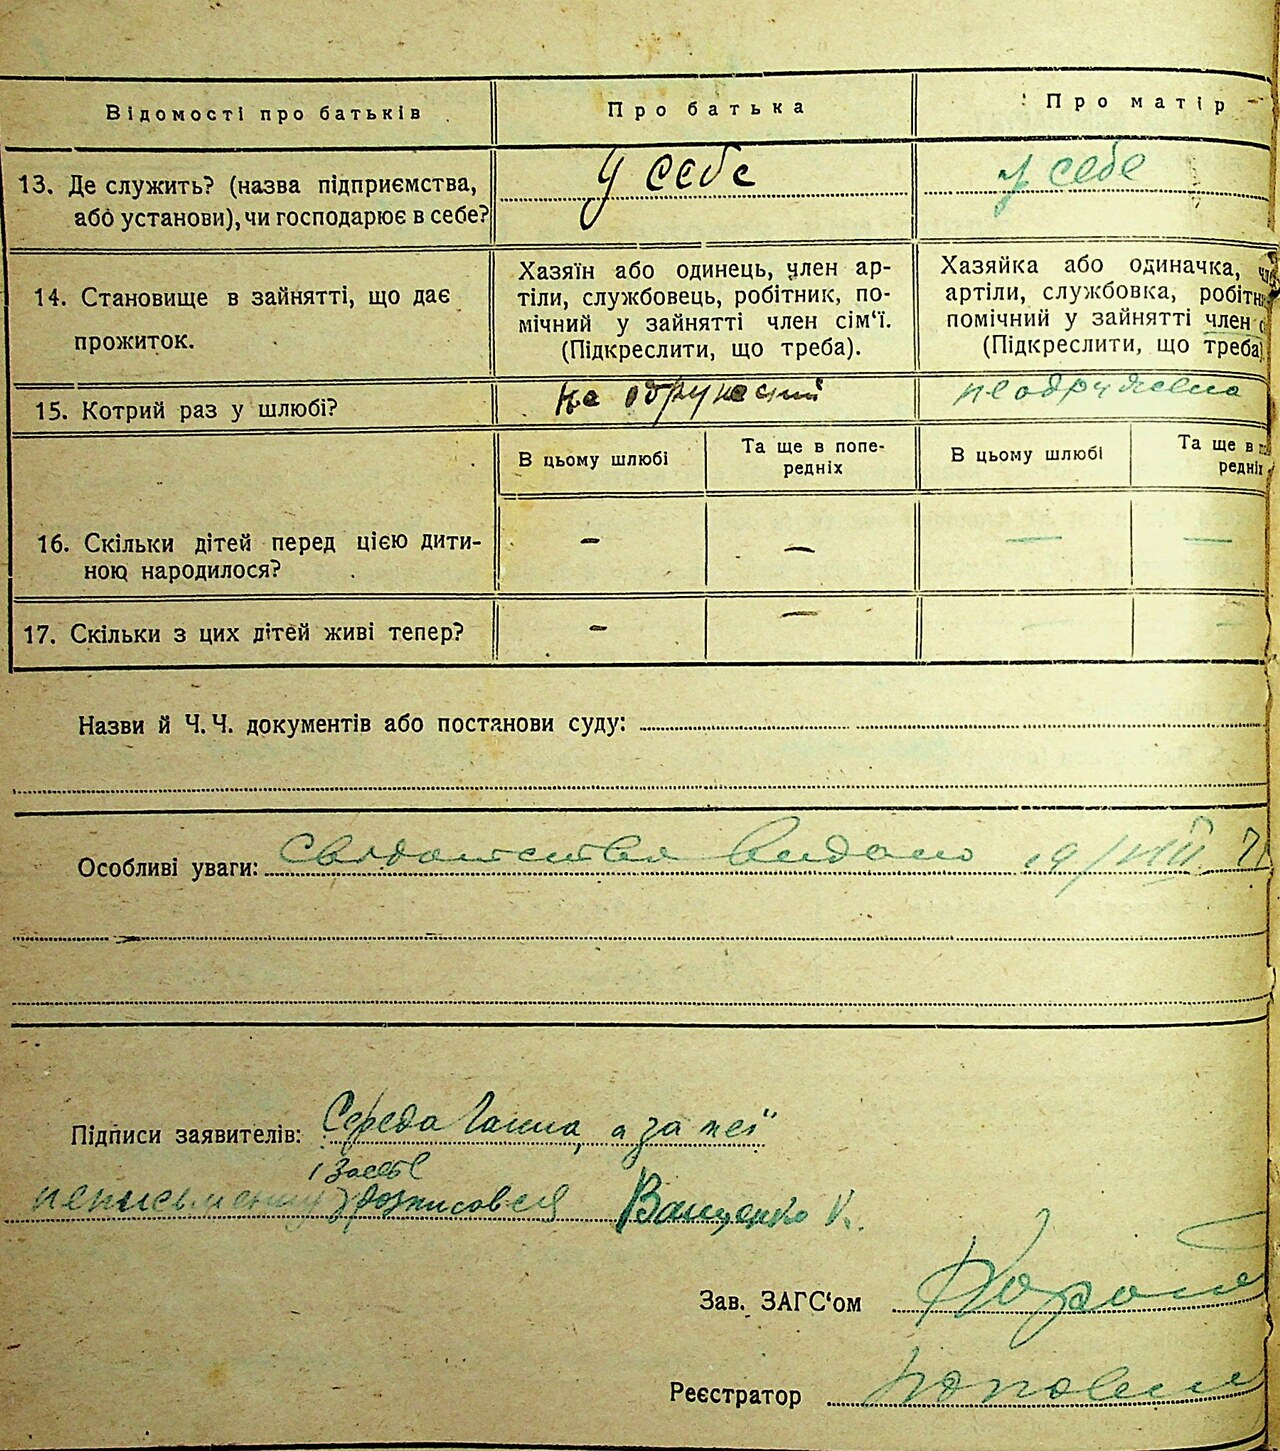 Відомості про батьків
Про батька
Про матір
13. Де служить? (назва підприємства,
або установи), чи господарює в себе?
у себе
у себе
14. Становище в зайнятті, що дає
прожиток.
Хазяїн або одинець, член ар-
тіли, службовець, робітник, по-
мічний у зайнятті член сім‘ї.
(Підкреслити, що треба).
Хазяйка або одиначка,
артіли, службовка, робітн
помічний у зайнятті член с
(Підкреслити, що треба)
15. Котрий раз у шлюбі?
не одружений
неодружена
В цьому шлюбі
Та ще в попе-
редніх
В цьому шлюбі
Та ще в п
редніх
16. Скільки дітей перед цією дити-
ною народилося?
—
—
—
—
17. Скільки з цих дітей живі тепер?
—
—
—
—
Назви й Ч. Ч. документів або постанови суду:
Особливі уваги: Свідоцтво видано 19/VIII
Підписи заявителів: Середа Ганна, а за неї
неписьменну розписовся Ващенко К.
Зав. ЗАГС‘ом
Реєстратор